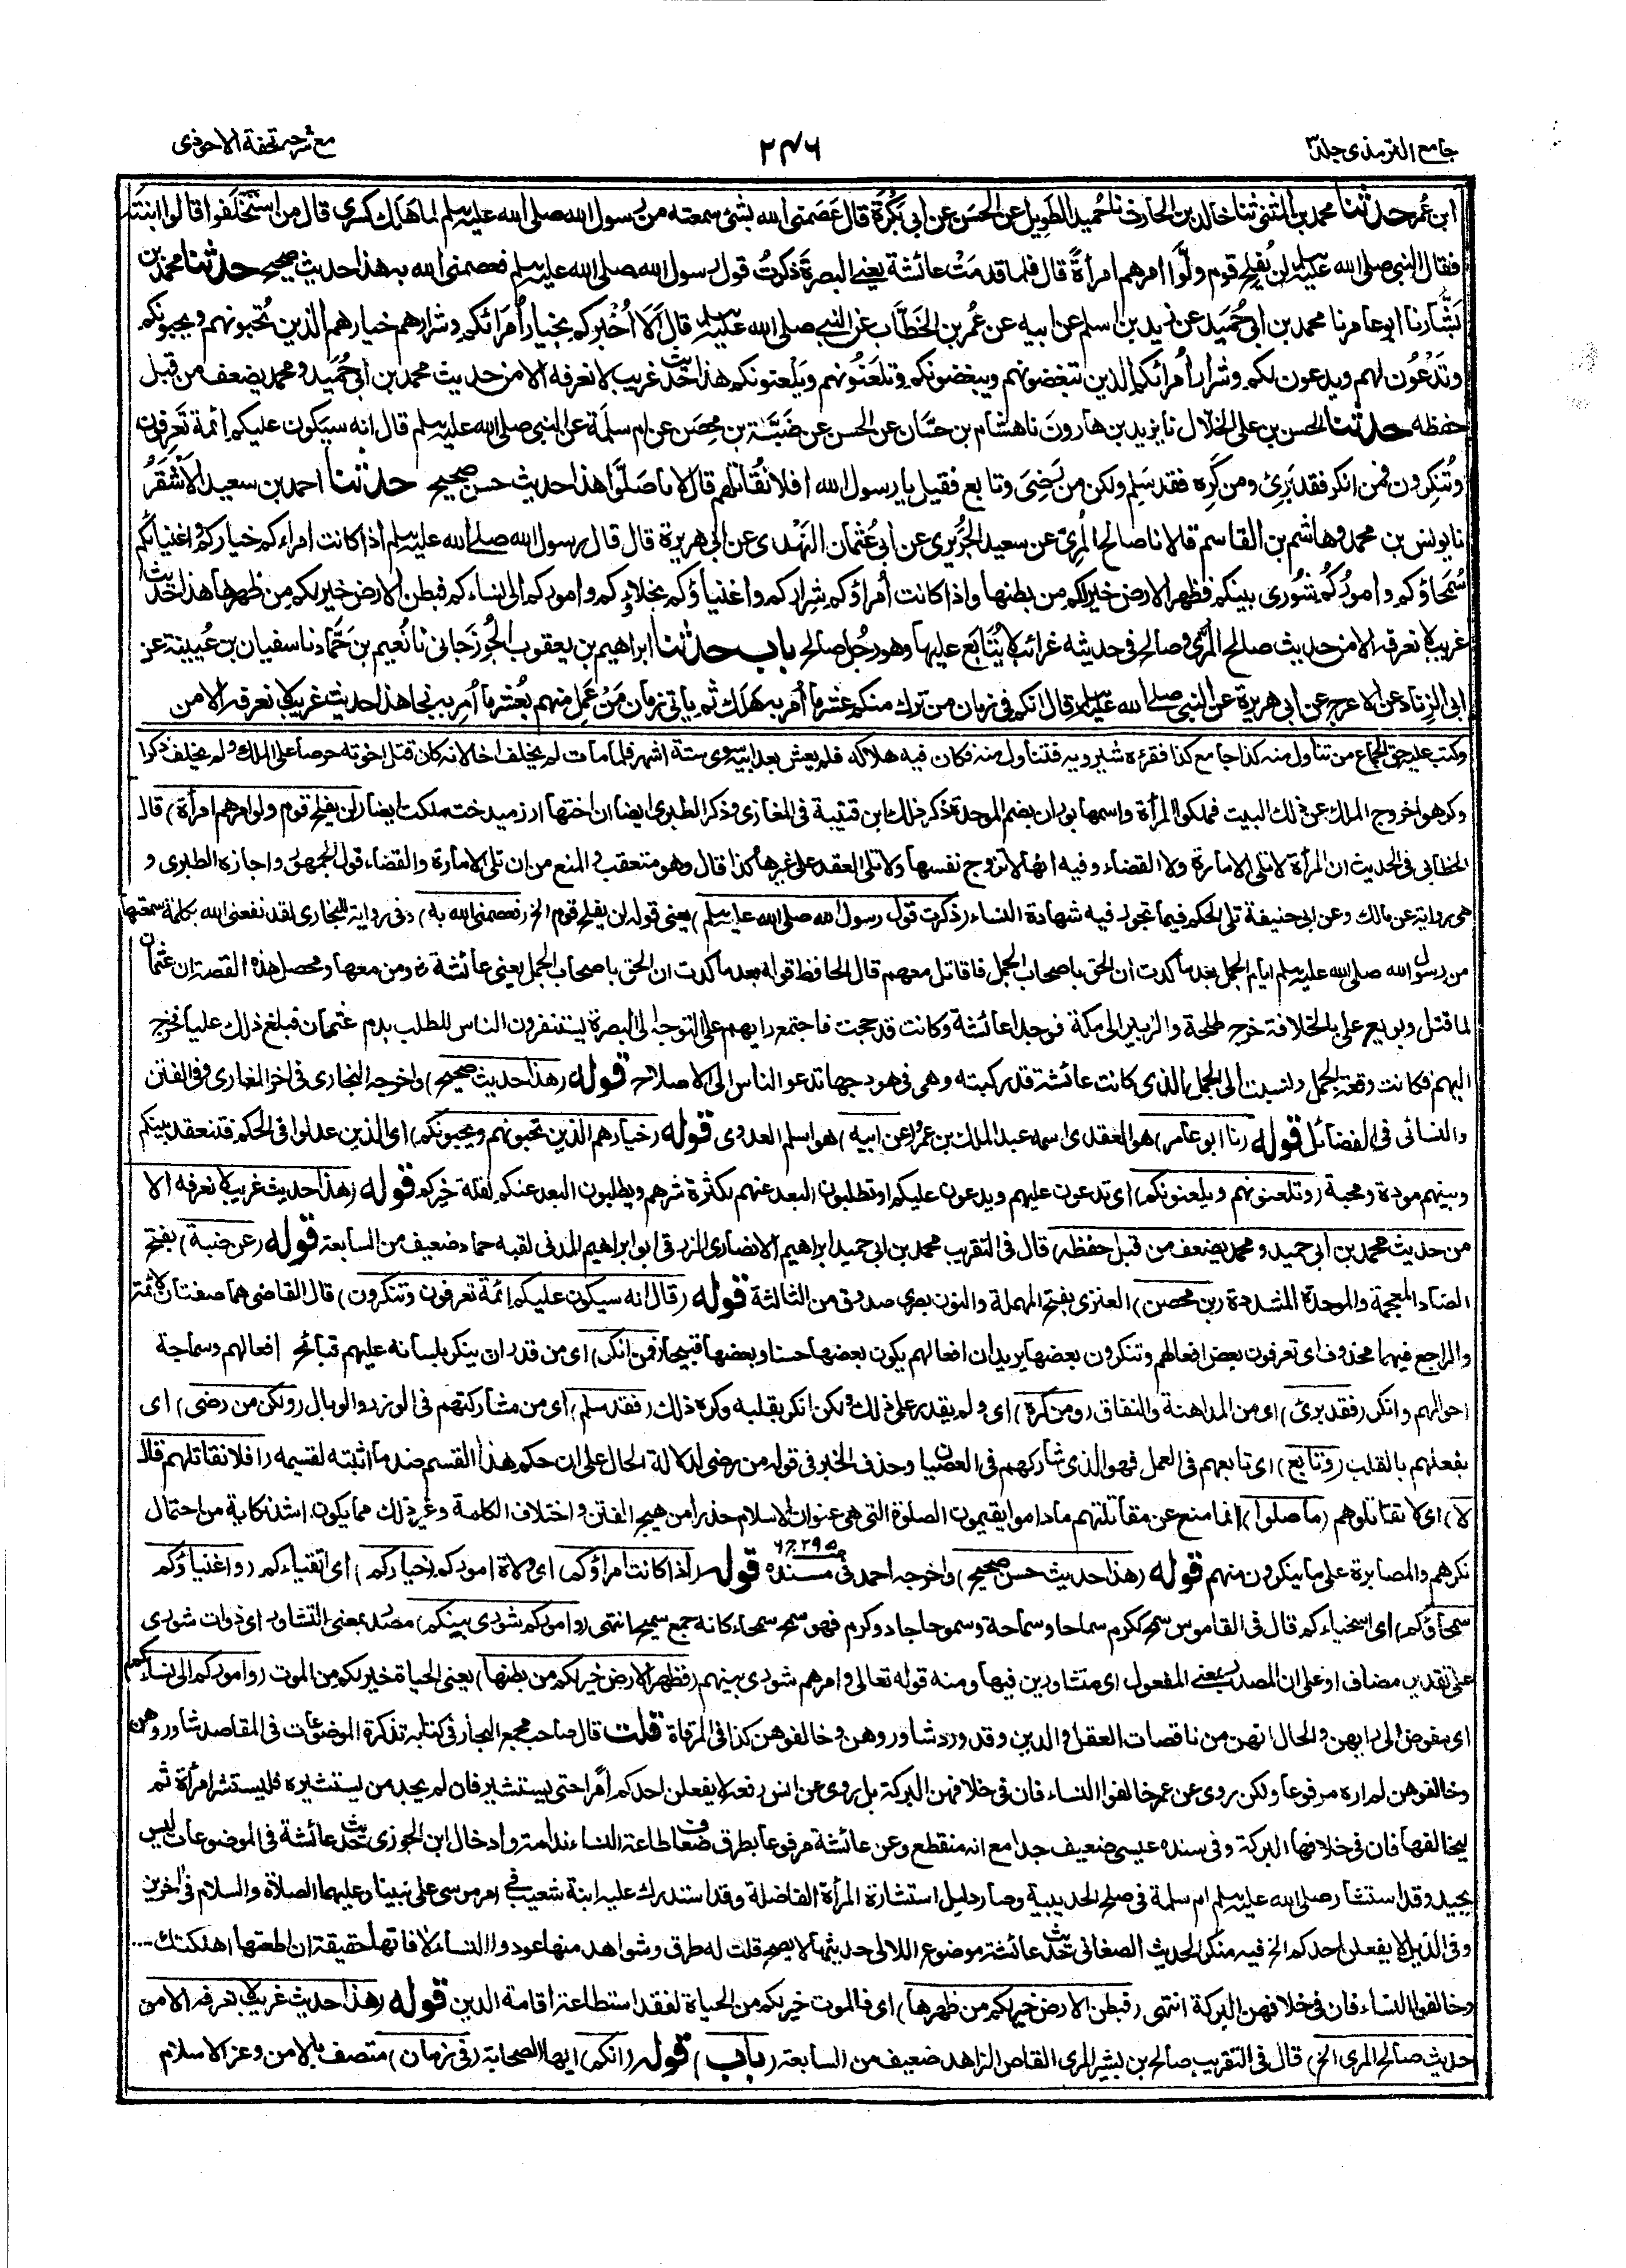 جامع الترمذي جلد٣
٢٤٦
مع شرحه تحفة الاحوذي
ابن عُمر حدثنا محمد بن المثنى ثنا خالد بن الحارث نا حُميد الطويل عن الحسن عن ابي بكرة قال عصمني الله بشئ سمعته من رسول الله صلى الله عليه وسلم لما هلك كسرى قال من استخلفوا قالوا ابنته
فقال النبي صلى الله عليه وسلم لن يُفلح قوم ولّوا امرهم امرأةً قال فلما قدمت عائشة يعني البصرة ذكرتُ قول رسول الله صلى الله عليه وسلم فعصمني الله به هذا حديث صحيح حدثنا محمد بن
بشّار نا ابو عامر نا محمد بن ابي حُميد عن زيد بن اسلم عن ابيه عن عُمر بن الخطّاب عن النبي صلى الله عليه وسلم قال الا أُخبركم بخيار أُمرائكم وشرارهم خيارهم الذين تُحبونهم ويحبونكم
وتَدْعُون لهم ويدعون لكم وشرار أُمرائكم الذين تبغضونهم ويبغضونكم وتلعَنُونهم ويَلعنونكم هذا حديث غريب لا نعرفه الا من حديث محمد بن ابي حُميد ومحمد يضعف من قبل
حفظه حدثنا الحسن بن علي الخلال نا يزيد بن هارون نا هشام بن حسّان عن الحسن عن ضَبَّة بن محصن عن ام سلمة عن النبي صلى الله عليه وسلم قال انه سيكون عليكم ائمة تَعرفون
وتُنكرون فمن انكر فقد بَرِئ ومن كَرِه فقد سَلِم ولكن من رَضِيَ وتابع فقيل يا رسول الله افلا نقاتلهم قال لا ما صَلَّوا هذا حديث حسن صحيح حدثنا احمد بن سعيد الاَشْقَرُ
نا يونس بن محمد وهاشم بن القاسم قالا نا صالح المُرِيّ عن سعيد الجُرَيري عن ابي عُثمان النَهْدي عن ابي هريرة قال قال رسول الله صلى الله عليه وسلم اذا كانت امراءكم خياركم واغنياءكم
سُمَحاؤكم واموركم شُورى بينكم فظهر الارض خير لكم من بطنها واذا كانت أُمراؤكم شراركم واغنياؤكم بخلاؤكم واموركم الى نساءكم فبطن الارض خير لكم من ظهرها هذا حديث
غريب لا نعرفه الا من حديث صالح المُرّي وصالح في حديثه غرائب لا يُتَابَع عليها وهو رجُل صالح باب حدثنا ابراهيم بن يعقوب الجُوزجَاني نا نُعيم بن حَمّاد نا سفيان بن عُيينة عن
ابي الزِناد عن الاعرج عن ابي هريرة عن النبي صلى الله عليه وسلم قال انكم في زمان من ترك منكم عشر ما أُمر به هلك ثم ياتي زمان مَنْ عمل منهم بعُشر ما أُمر به نجا هذا حديث غريب لا نعرفه الا من
وكتب عليه حق الجماع من تناول منه كذا جامع كذا فقرءه شيرويه فتناول منه فكان فيه هلاكه فلم يعش بعد ابيه سوى ستة اشهر فلما مات لم يخلف اخا لانه كان قتل اخوته حرصا على الملك ولم يخلف ذكرا
وكرهوا خروج الملك عن ذلك البيت فملكوا المرأة واسمها بوران بضم الموحدة ذكر ذلك ابن قتيبة في المغازي وذكر الطبري ايضا ان اختها ارزميدخت ملكت ايضا (لن يفلح قوم ولوا امرهم امرأة) قال
الخطابي في الحديث ان المرأة لا تلي الامارة ولا القضاء وفيه انها لا تزوج نفسها ولا تلي العقد على غيرها كذا قال وهو متعقب والمنع من ان تلي الامارة والقضاء قول الجمهور واجازه الطبري و
هي رواية عن مالك وعن ابي حنيفة تلي الحكم فيما تجوز فيه شهادة النساء (ذكرت قول رسول الله صلى الله عليه وسلم) يعني قوله لن يفلح قوم الخ (فعصمني الله به) وفي رواية للبخاري لقد نفعني الله بكلمة سمعتها
من رسول الله صلى الله عليه وسلم ايام الجمل بعد ما كدت ان الحق باصحاب الجمل فاقاتل معهم قال الحافظ قوله بعد ما كدت ان الحق باصحاب الجمل يعني عائشة رض ومن معها ومحصل هذه القصة ان عثمان
لما قتل وبويع علي بالخلافة خرج طلحة والزبير الى مكة فوجدا عائشة وكانت قد حجت فاجتمع رايهم على التوجه الى البصرة يستنفرون الناس للطلب بدم عثمان فبلغ ذلك عليا فخرج
اليهم فكانت وقعة الجمل ونسبت الى الجمل الذي كانت عائشة قد ركبته وهي في هودجها تدعو الناس الى الاصلاح قوله (هذا حديث صحيح) واخرجه البخاري في اخر المغازي وفي الفتن
والنسائي في الفضائل قوله (نا ابو عامر) هو العقدي اسمه عبد الملك بن عمرو (عن ابيه) هو اسلم العدوي قوله (خيارهم الذين تحبونهم ويحبونكم) اي الذين عدلوا في الحكم فتنعقد بينكم
وبينهم مودة ومحبة (وتلعنونهم ويلعنونكم) اي تدعون عليهم ويدعون عليكم او تطلبون البعد عنهم بكثرة شرهم ويطلبون البعد عنكم لقلة خيركم قوله (هذا حديث غريب لا نعرفه الا
من حديث محمد بن ابي حميد ومحمد يضعف من قبل حفظه) قال في التقريب محمد بن ابي حميد ابراهيم الانصاري الزرقي ابو ابراهيم المدني لقبه حماد ضعيف من السابعة قوله (عن ضبة) بفتح
الضاد المعجمة والموحدة المشددة (بن محصن) العنزي بفتح المهملة والنون بصري صدوق من الثالثة قوله (قال انه سيكون عليكم ائمة تعرفون وتنكرون) قال القاضي هما صفتان لائمة
والراجع فيهما محذوف اي تعرفون بعض افعالهم وتنكرون بعضها يريد ان افعالهم يكون بعضها حسنا وبعضها قبيحا (فمن انكر) اي من قدر ان ينكر بلسانه عليهم قبائح افعالهم وسماجة
احوالهم وانكر (فقد برئ) اي من المداهنة والنفاق (ومن كره) اي ولم يقدر على ذلك ولكن انكر بقلبه وكره ذلك (فقد سلم) اي من مشاركتهم في الوزر والوبال (ولكن من رضي) اي
بفعلهم بالقلب (وتابع) اي تابعهم في العمل فهو الذي شاركهم في العصيان وحذف الخبر في قوله من رضي لدلالة الحال على ان حكم هذا القسم ضد ما اثبته لقسيمه (افلا نقاتلهم قال
لا) اي لا تقاتلوهم (ما صلوا) انما منع عن مقاتلتهم ماداموا يقيمون الصلوة التي هي عنوان الاسلام حذرا من هيج الفتن واختلاف الكلمة وغير ذلك مما يكون اشد نكاية من احتمال
نكرهم والمصابرة على ما ينكرون منهم قوله (هذا حديث حسن صحيح) واخرجه احمد في مسنده قوله (اذا كانت امراؤكم) اي ولاة اموركم (خياركم) اي اتقياءكم (واغنياؤكم
سمحاؤكم) اي اسخياءكم قال في القاموس سمح ككرم سماحا وسماحة وسموحا جاد وكرم فهو سمح سمحاء كانه جمع سميح انتهى (واموركم شورى بينكم) مصدر بمعنى التشاور اي ذوات شورى
على تقدير مضاف او على ان المصدر بمعنى المفعول اي متشاورين فيها ومنه قوله تعالى وامرهم شورى بينهم (فظهر الارض خير لكم من بطنها) يعني الحياة خير لكم من الموت (واموركم الى نساءكم)
اي مفوض الى رايهن والحال انهن من ناقصات العقل والدين وقد ورد شاوروهن وخالفوهن كذا في المرقاة قلت قال صاحب مجمع البحار في كتابه تذكرة الموضوعات في المقاصد شاوروهن
وخالفوهن لم اره مرفوعا ولكن روى عن عمر خالفوا النساء فان في خلافهن البركة بل روى عن انس رفعه لا يفعلن احدكم امرا حتى يستشير فان لم يجد من يستشيره فليستشر امرأة ثم
ليخالفها فان في خلافها البركة وفي سنده عيسى ضعيف جدا مع انه منقطع وعن عائشة مرفوعا بطرق ضعاف طاعة النساء ندامة وادخال ابن الجوزي حديث عائشة في الموضوعات ليس
بجيد وقد استشار صلى الله عليه وسلم ام سلمة في صلح الحديبية وصار دليل استشارة المرأة الفاضلة وقد استدرك عليه ابنة شعيب في امر موسى على نبينا وعليهما الصلاة والسلام في اخرين
وفي الذيل لا يفعلن احدكم الخ فيه منكر الحديث الصغاني حديث عائشة موضوع اللالي حديثها لا يصح قلت له طرق وشواهد منها عودوا النساء لا فانها حقيقة ان اطعتها اهلكتك ...
وخالفوا النساء فان في خلافهن البركة انتهى (فبطن الارض خير لكم من ظهرها) اي فالموت خير لكم من الحياة لفقد استطاعة اقامة الدين قوله (هذا حديث غريب لا نعرفه الا من
حديث صالح المري الخ) قال في التقريب صالح بن بشير المري القاص الزاهد ضعيف من السابعة (باب) قوله (انكم) ايها الصحابة (في زمان) متصف بالامن وعز الاسلام